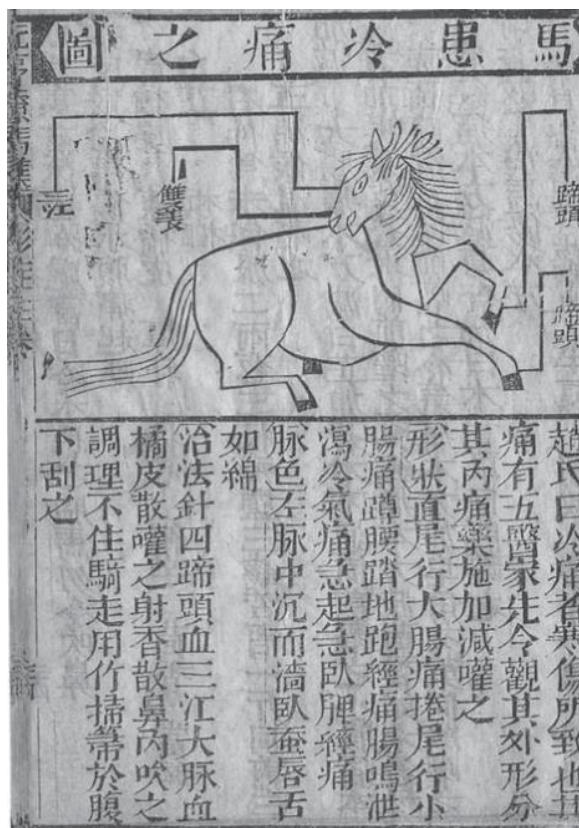 馬患冷痛之圖
蹄頭
蹄頭
雙
三江
趙氏曰冷痛者寒傷所致也
痛有五醫家先令觀其外形分
其丙痛藥施加減嚾之
形狀直尾行大腸痛捲尾行小
腸痛蹲腰踏地跑經痛腸鳴泄
瀉冷氣痛急起急臥脾經痛
脉色左脉中沉而濇臥蚕唇舌
如綿
治法針四蹄頭血三江大脉血
橘皮散嚾之射香散鼻丙吹之
調理不住騎走用竹掃箒於腹
下刮之